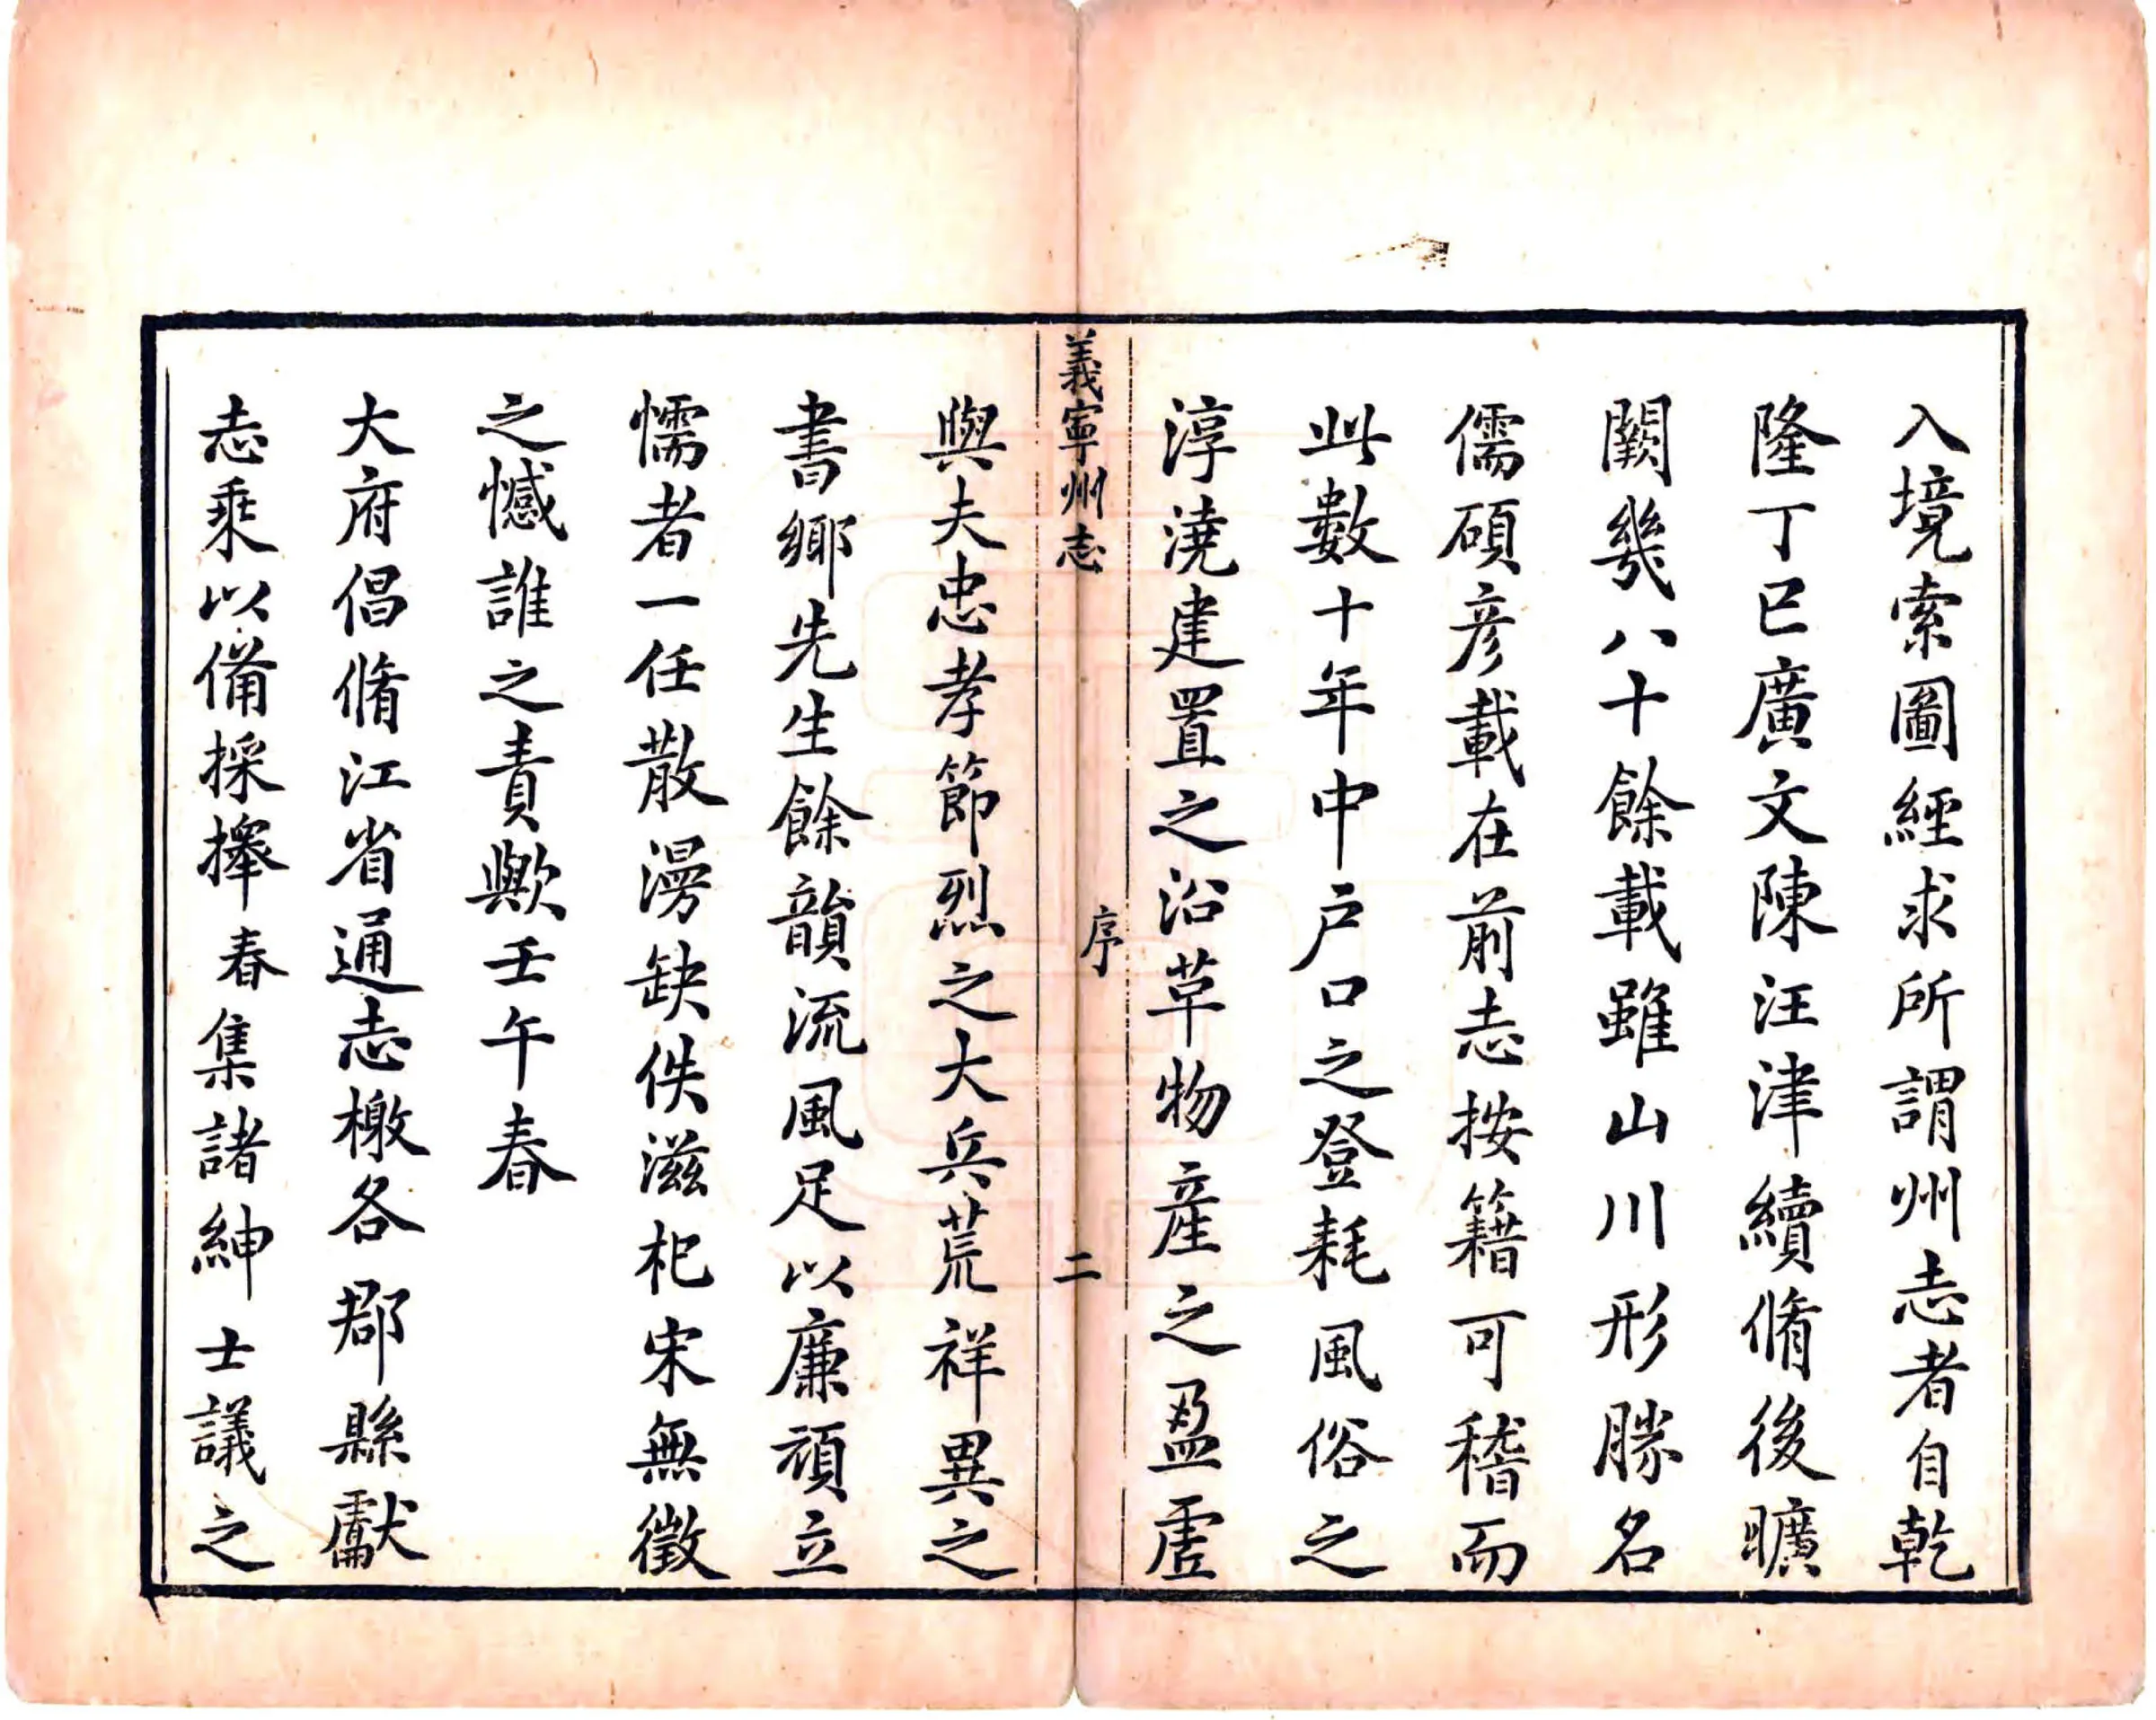 入境索圖經求所謂州志者自乾
隆丁巳廣文陳汪津續脩後曠
闕幾八十餘載雖山川形勝名
儒碩彦載在前志按籍可稽而
此數十年中戶口之登耗風俗之
淳澆建置之沿革物産之盈虛
義寧州志 序 二
與夫忠孝節烈之大兵荒祥異之
書鄉先生餘韻流風足以廉頑立
懦者一任散漫缺佚滋杞宋無徵
之憾誰之責歟壬午春
大府倡脩江省通志檄各郡縣獻
志乘以備採擇春集諸紳士議之